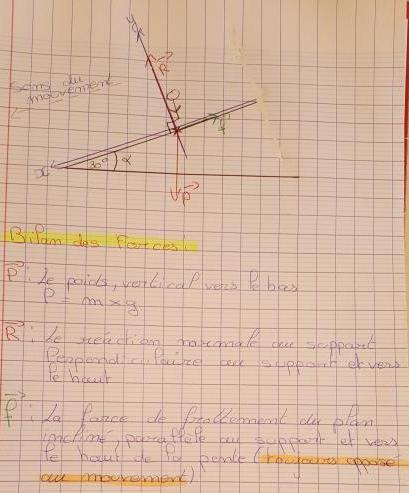 y
R
sens du
mouvement
f
x
30° α
P
Bilan des Forces:
P : Le poids, vertical vers le bas
P = m × g
R : Le réaction normale au support
Perpendiculaire au support et vers
le haut
f : La force de frottement du plan
incliné, parallèle au support et vers
le haut de la pente (toujours opposé
au mouvement)